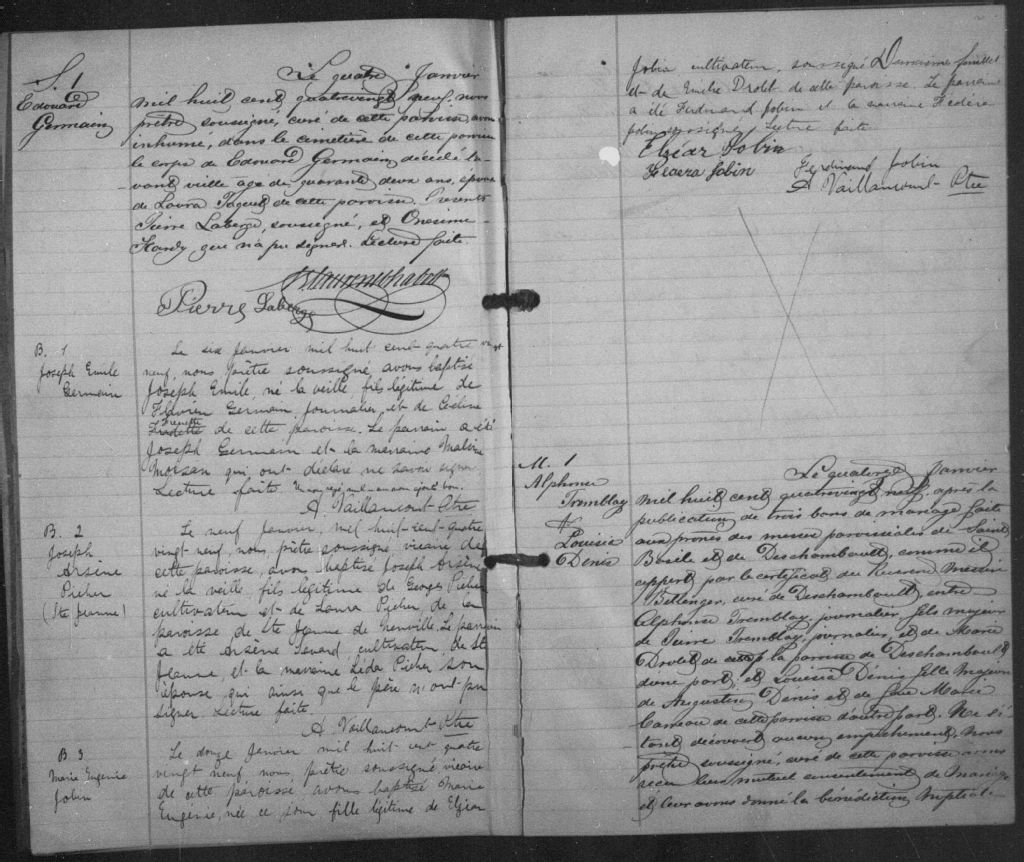 S. 1
Edouard
Germain
Le quatre Janvier
mil huit cent quatrevingt neuf, nous
prêtre soussigné, curé de cette paroisse, avons
inhumé, dans le cimetière de cette paroisse
le corps de Edouard Germain, décédé l'a-
-vant veille âgé de quarante deux ans, époux
de Laura Paquet de cette paroisse. Présents
Pierre Laberge, soussigné, et Onesime
Hardy, qui n'a pu signer. Lecture faite.
Pierre Laberge
B. 1
Joseph Emile
Germain
Le six Janvier mil huit cent quatre vingt
neuf, nous prêtre soussigné, avons baptisé
Joseph Emile, né la veille, fils légitime de
Flavien Germain, journalier, et de Céline
Frenette
de cette paroisse. Le parrain a été
Joseph Germain et la marraine
Moisan qui ont déclaré ne savoir signer.
Lecture faite. Un mot rayé nul - un mot ajouté bon.
A. Vaillancourt Ptre
B. 2
Joseph
Arsène
Picher
(Ste Jeanne)
Le neuf Janvier, mil huit cent quatre
vingt neuf, nous, prêtre soussigné, vicaire de
cette paroisse, avons baptisé Joseph Arsène
né la veille fils légitime de Georges Picher
cultivateur et de Laura Picher, de la
paroisse de Ste Jeanne de Neuville. Le parrain
a été Arsène cultivateur, de Ste
Jeanne, et la marraine Léda Picher son
épouse, qui ainsi que le père n'ont pu
signer. Lecture faite
A. Vaillancourt Ptre
B 3
Marie Eugénie
Jobin
Le douze Janvier mil huit cent quatre
vingt neuf, nous, prêtre soussigné, vicaire
de cette paroisse avons baptisé Marie
Eugénie, née ce jour fille légitime de Elzéar
Jobin cultivateur, soussigné
et de Emélie Drolet de cette paroisse. Le parrain
a été Ferdinand Jobin et la marraine Fedora
Jobin soussignés. Lecture faite.
Elzéar Jobin
Fedora Jobin
Ferdinand Jobin
A Vaillancourt Ptre
M. 1
Alphonse
Tremblay
&
Louisia
Dénis
Le quatorze Janvier
mil huit cent quatrevingt neuf, après la
publication de trois bans de mariage faite
aux prones des messes paroissiales de Saint
Basile et de Deschambault, comme il
appert par le certificat du Reverend Messire
Bellenger, curé de Deschambault, entre
Alphonse Tremblay, journalier, fils majeur
de Pierre Tremblay, journalier, et de Marie
Drolet de la paroisse de Deschambault
d'une part, et Louisia Dénis fille majeure
de Augustin Dénis et de feue Marie
de cette paroisse d'autre part. Ne s'é-
tant découvert aucun empêchement, Nous
prêtre soussigné, curé de cette paroisse avons
reçu leur mutuel consentement de Mariage
et leur avons donné la bénédiction Nuptiale